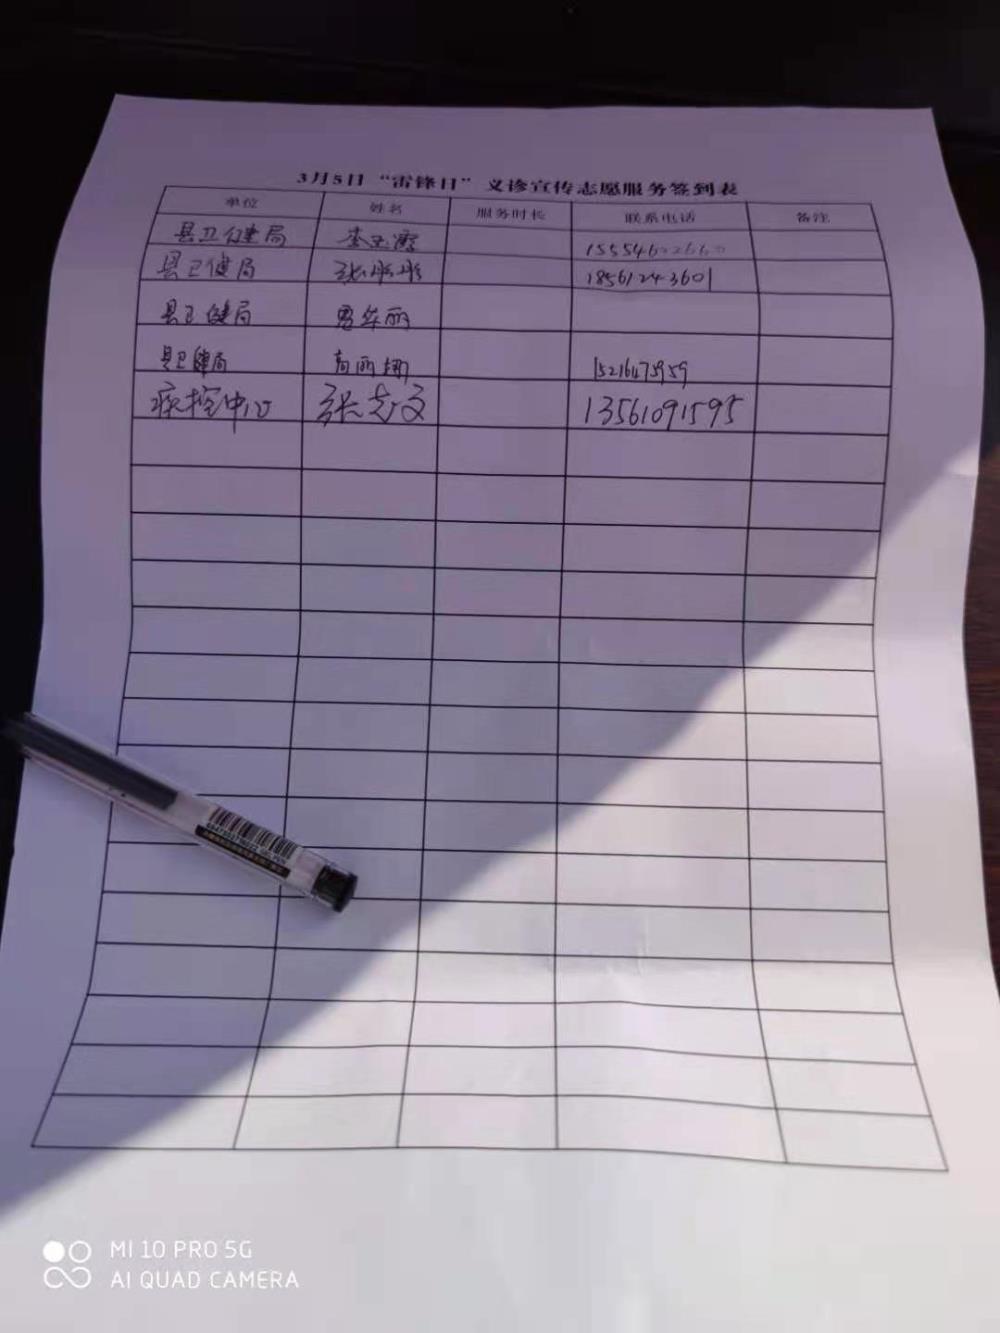 3月5日“雷锋日”义诊宣传志愿服务签到表
单位 姓名 服务时长 联系电话 备注
县卫健局 李玉霞
县卫健局 张彬彬 18561243601
县卫健局 丽
县卫健局 高丽娜 15216475959
疾控中心 张志文 13561091595
MI 10 PRO 5G
AI QUAD CAMERA